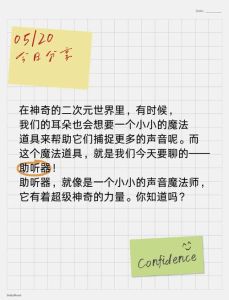 05/20
今日分享
在神奇的二次元世界里，有时候，
我们的耳朵也会想要一个小小的魔法
道具来帮助它们捕捉更多的声音呢。而
这个魔法道具，就是我们今天要聊的——
助听器！
助听器，就像是一个小小的声音魔法师，
它有着超级神奇的力量。你知道吗？
Confidence